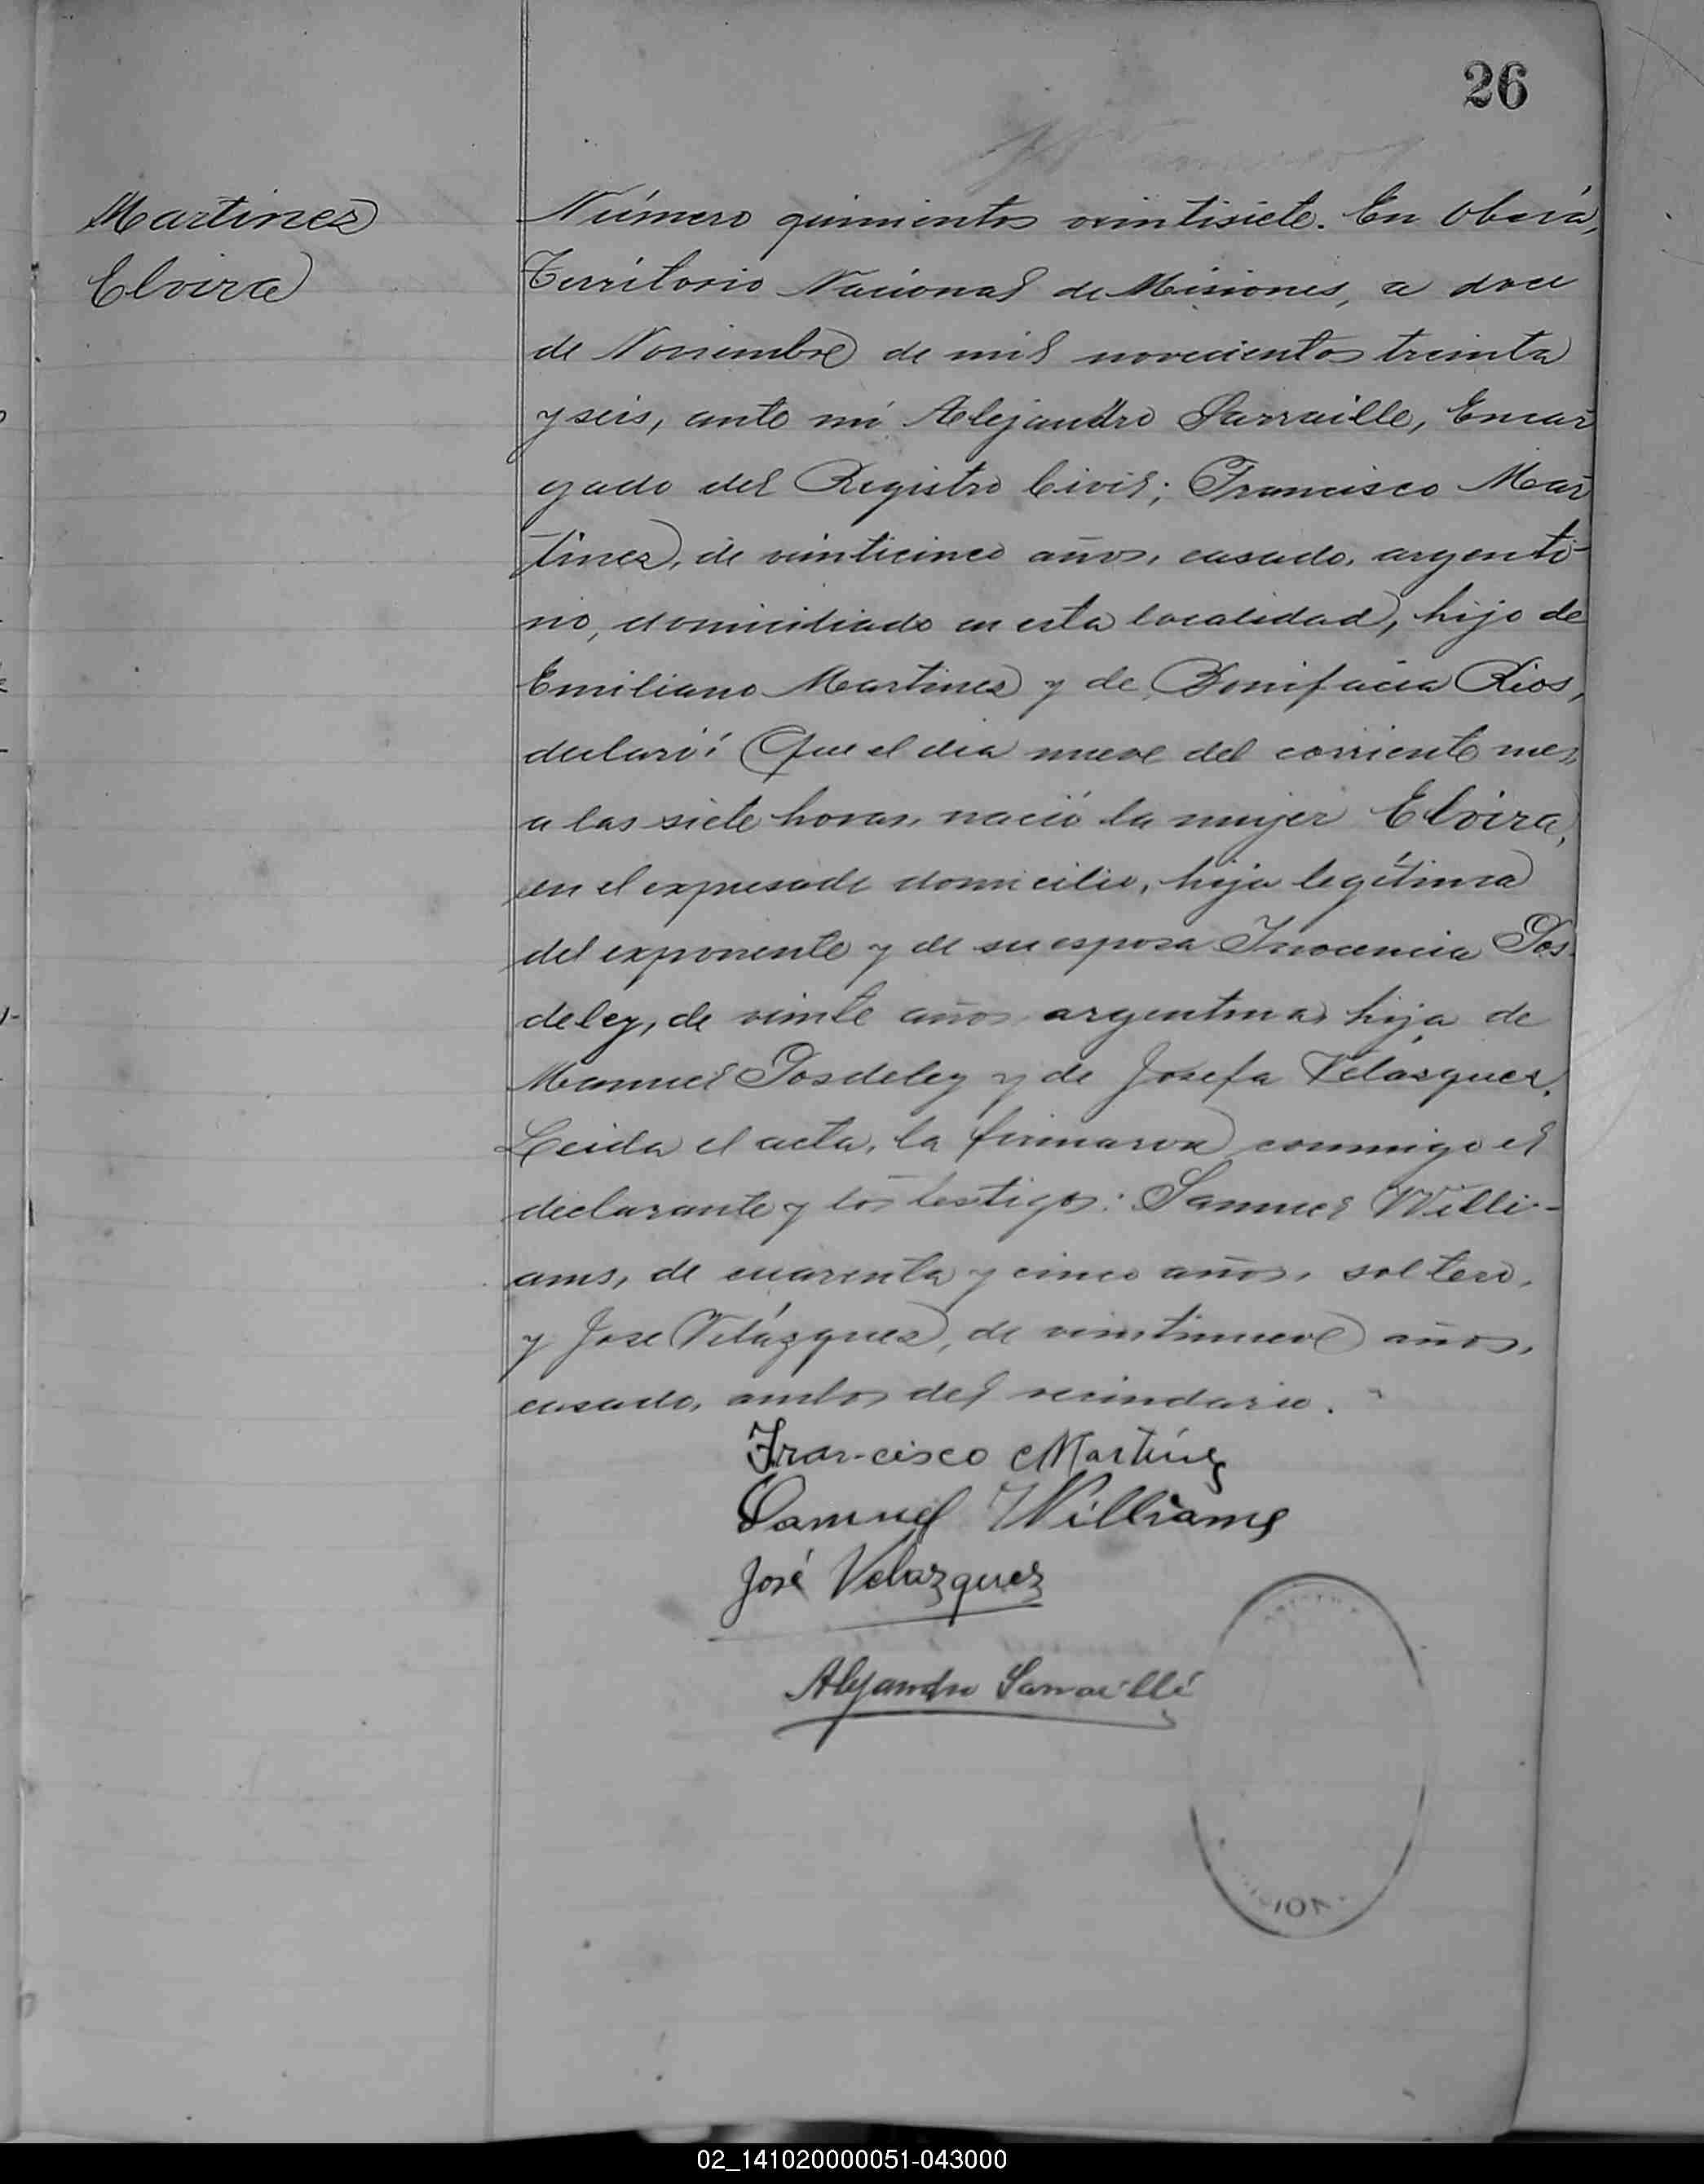 26
Martinez
Elvira
Número quinientos veintisiete. En Oberá,
Territorio Nacional de Misiones, a doce
de Noviembre de mil novecientos treinta
y seis, ante mí Alejandro Sarraille, Encar
gado del Registro Civil; Francisco Mar
tinez, de veinticinco años, casado, argenti-
no, domiciliado en esta localidad, hijo de
Emiliano Martinez y de Bonifacia Rios,
declaró: Que el dia nueve del corriente mes,
a las siete horas, nació la mujer Elvira,
en el expresado domicilio, hija legítima
del exponente y de su esposa Inocencia Pos-
deley, de veinte años argentina, hija de
Manuel Posdeley y de Josefa Velásquez.
Leida el acta, la firmaron conmigo el
declarante y los testigos: Samuel Willi-
ams, de cuarenta y cinco años, soltero,
y Jose Velázquez, de veintinueve años,
casado, ambos del vecindario.
Francisco Martínez
Samuel Williams
José Velazquez
Alejandro Sarraille
02_141020000051-043000